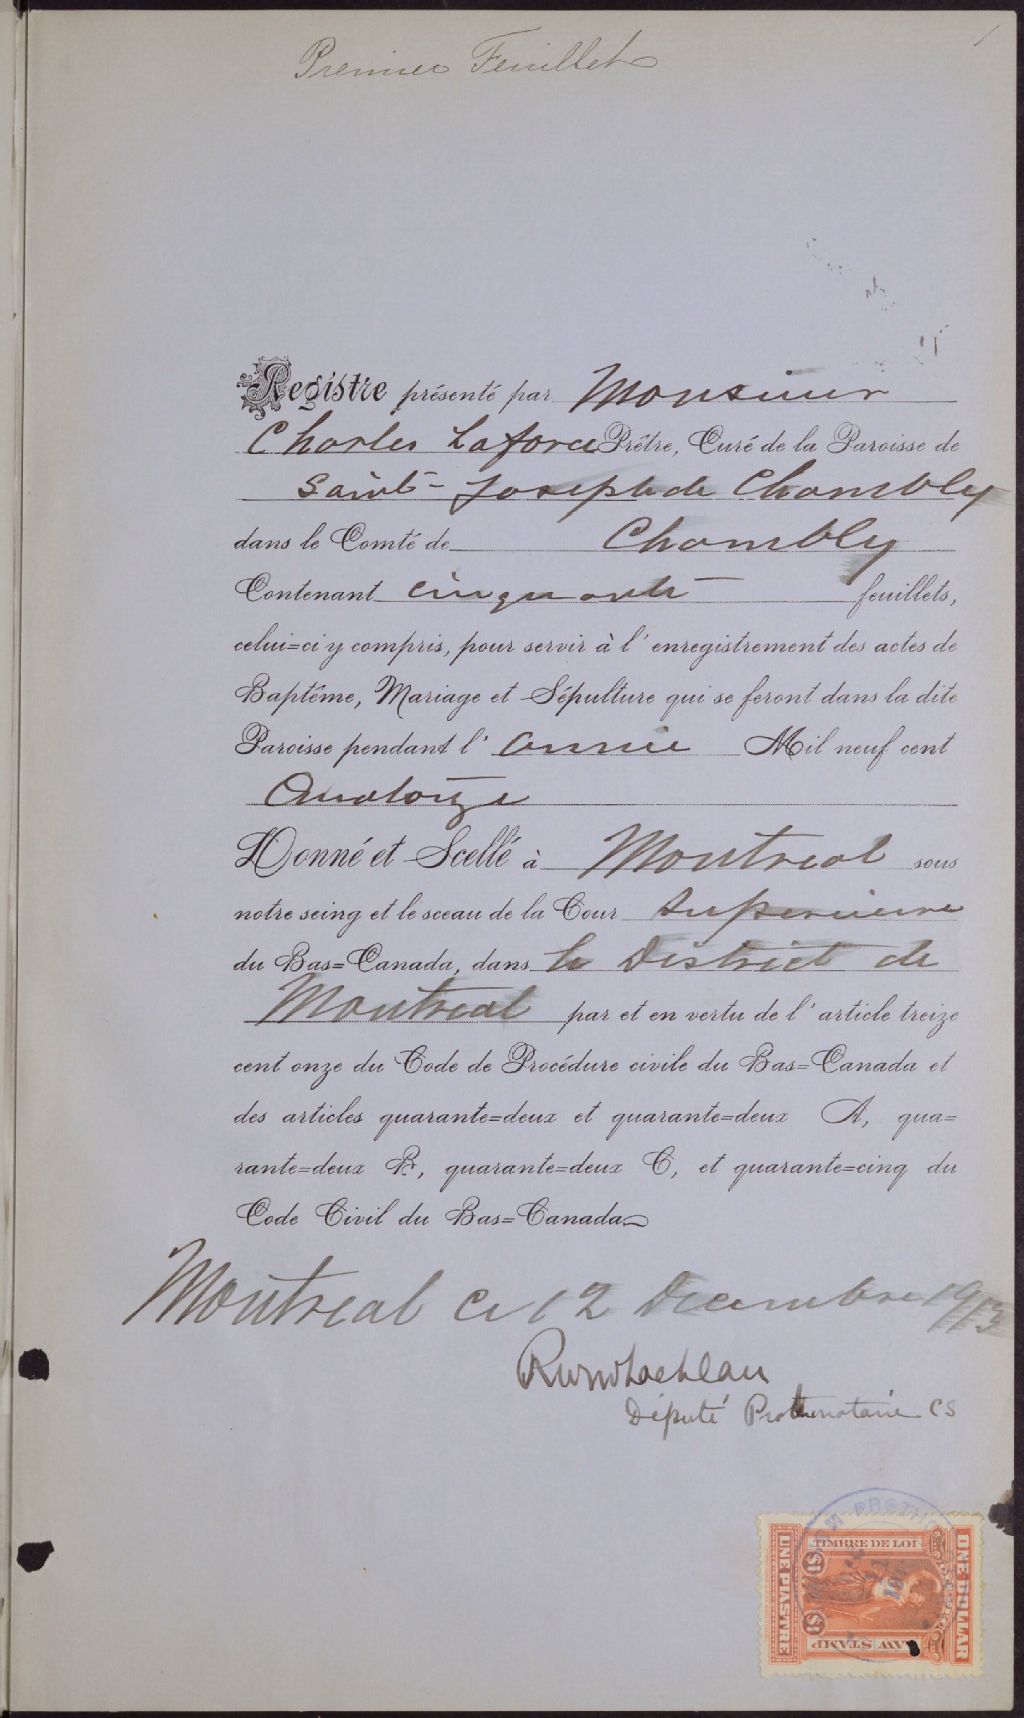 Premier Feuillet
1
Registre présenté par Monsieur
Charles Laforce Prêtre, Curé de la Paroisse de
Saint-Joseph de Chambly
dans le Comté de Chambly
Contenant cinquante feuillets,
celui=ci y compris, pour servir à l'enregistrement des actes de
Baptême, Mariage et Sépulture qui se feront dans la dite
Paroisse pendant l'année Mil neuf cent
Quatorze
Donné et Scellé à Montreal sous
notre seing et le sceau de la Cour Superieure
du Bas=Canada, dans le District de
Montreal par et en vertu de l'article treize
cent onze du Code de Procédure civile du Bas=Canada et
des articles quarante=deux et quarante=deux A, qua=
rante=deux B, quarante=deux C, et quarante=cinq du
Code Civil du Bas=Canada
Montreal ce 12 Decembre 1913
Député Protonotaire CS
TIMBRE DE LOI
ONE DOLLAR
UNE PIASTRE
$1 $1
LAW STAMP